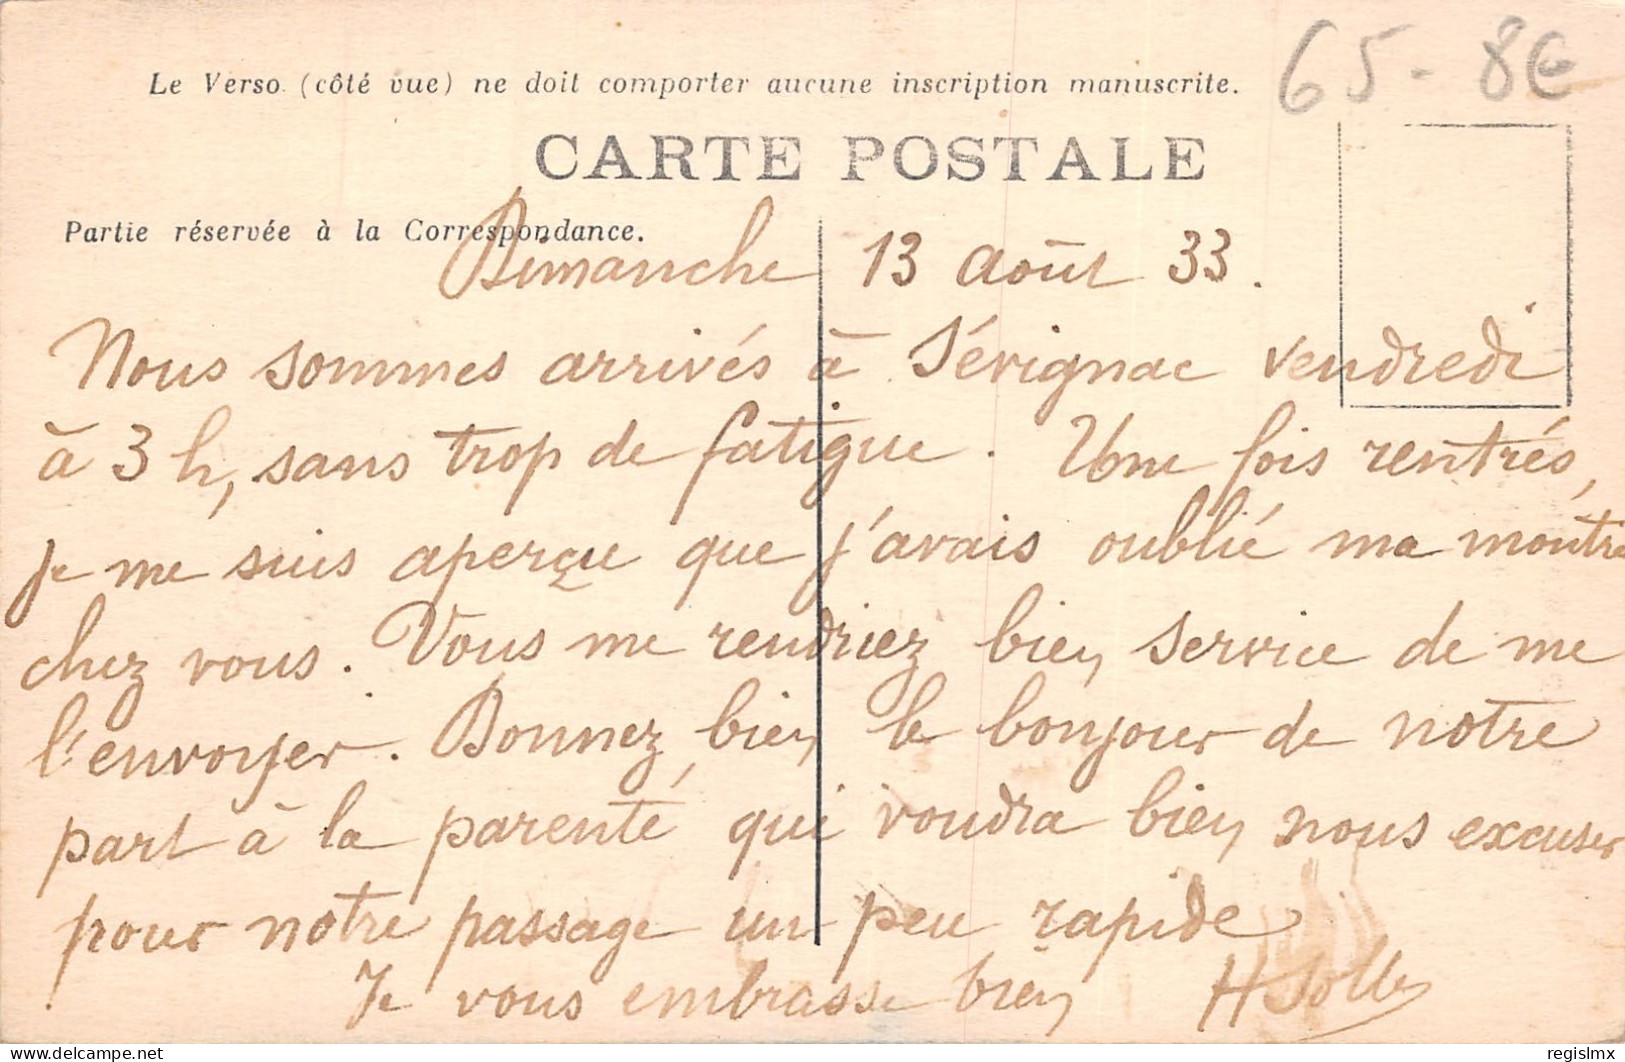 65 - 8€
Le Verso (côté vue) ne doit comporter aucune inscription manuscrite.
CARTE POSTALE
Partie réservée à la Correspondance.
Dimanche 13 Août 33.
Nous sommes arrivés à Sévignac vendredi
à 3 h, sans trop de fatigue. Une fois rentrés,
je me suis aperçu que j'avais oublié ma montre
chez vous. Vous me rendriez bien service de me
l'envoyer. Donnez bien le bonjour de notre
part à la parenté qui voudra bien nous excuser
pour notre passage un peu rapide
Je vous embrasse bien H
delcampe.net
regislmx